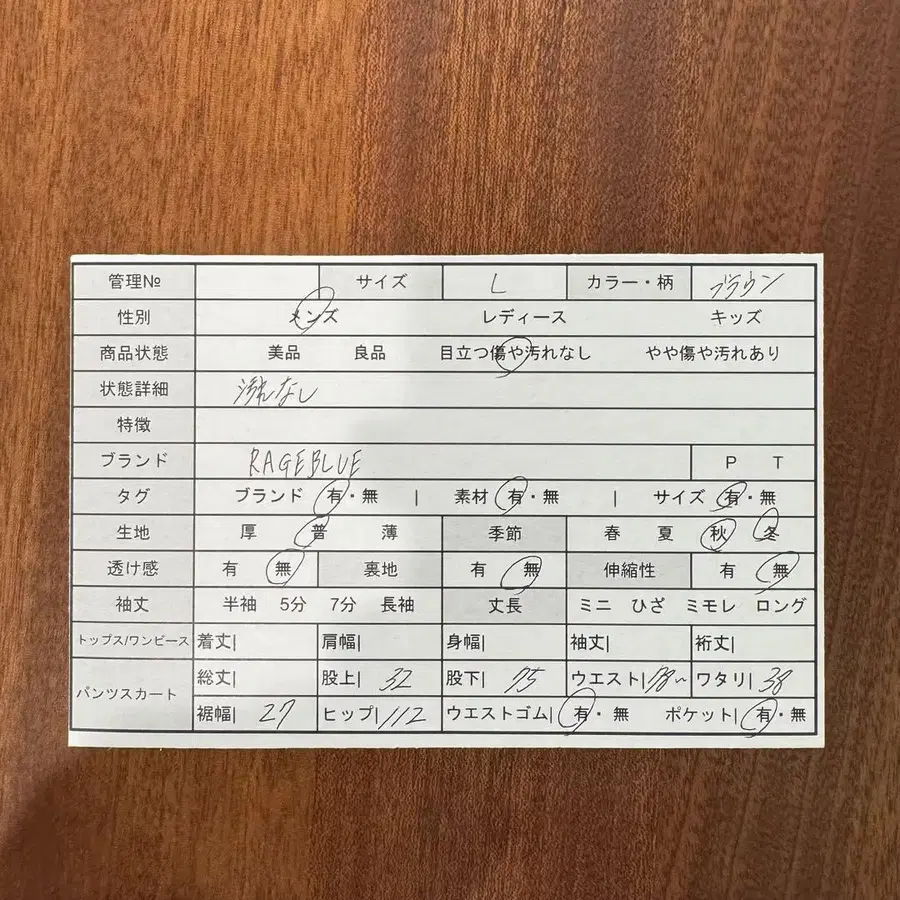 管理№ サイズ L カラー・柄 ブラウン
性別 メンズ レディース キッズ
商品状態 美品 良品 目立つ傷や汚れなし やや傷や汚れあり
状態詳細 汚れなし
特徴
ブランド RAGEBLUE P T
タグ ブランド 有・無 | 素材 有・無 | サイズ 有・無
生地 厚 普 薄 季節 春 夏 秋 冬
透け感 有 無 裏地 有 無 伸縮性 有 無
袖丈 半袖 5分 7分 長袖 丈長 ミニ ひざ ミモレ ロング
トップス/ワンピース 着丈| 肩幅| 身幅| 袖丈| 裄丈|
パンツスカート 総丈| 股上| 32 股下| 75 ウエスト| 78~ ワタリ| 38
裾幅| 27 ヒップ| 112 ウエストゴム| 有・無 ポケット| 有・無